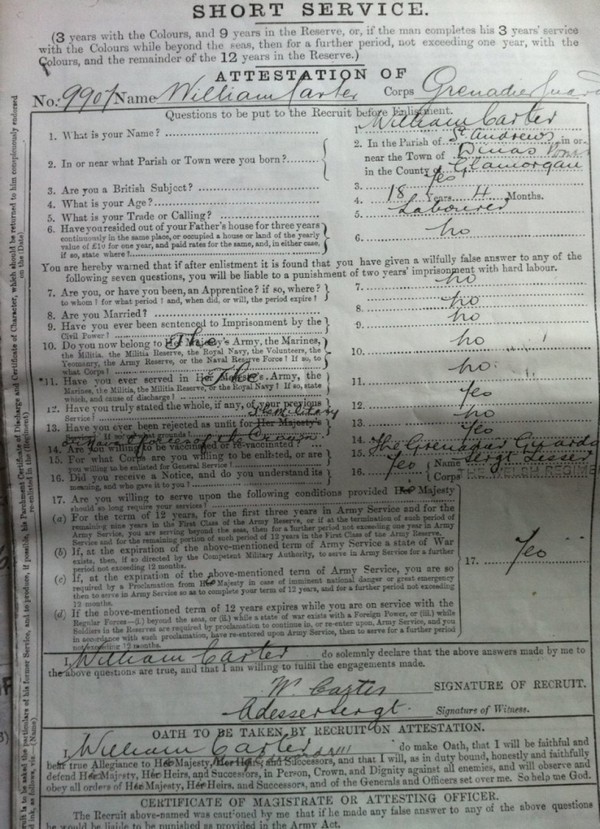 SHORT SERVICE.
(3 years with the Colours, and 9 years in the Reserve, or, if the man completes his 3 years' service
with the Colours while beyond the seas, then for a further period, not exceeding one year, with the
Colours, and the remainder of the 12 years in the Reserve.)
ATTESTATION OF
No. 9907 Name William Carter Corps Grenadier Guards
Questions to be put to the Recruit before Enlistment.
1. What is your Name? William Carter
2. In or near what Parish or Town were you born? 2. In the Parish of St Andrews in or
near the Town of Dinas
in the County of Glamorgan
3. Are you a British Subject? 3. Yes
4. What is your Age? 4. 18 Years 4 Months.
5. What is your Trade or Calling? 5. Labourer
6. Have you resided out of your Father's house for three years 6. no
continuously in the same place, or occupied a house or land of the yearly
value of £10 for one year, and paid rates for the same, and, in either case,
if so, state where?
You are hereby warned that if after enlistment it is found that you have given a wilfully false answer to any of the
following seven questions, you will be liable to a punishment of two years' imprisonment with hard labour.
7. Are you, or have you been, an Apprentice? if so, where? 7. no
to whom? for what period? and, when did, or will, the period expire?
8. Are you Married? 8. no
9. Have you ever been sentenced to Imprisonment by the 9. no
Civil Power?
10. Do you now belong to Her Majesty's Army, the Marines, The 10. no
the Militia, the Militia Reserve, the Royal Navy, the Volunteers, the
Yeomanry, the Army Reserve, or the Naval Reserve Force? If so, to
what Corps?
11. Have you ever served in Her Majesty's Army, the The 11. no
Marines, the Militia, the Militia Reserve, or the Royal Navy? If so, state
which, and cause of discharge?
12. Have you truly stated the whole, if any, of your previous 12. Yes
Service?
13. Have you ever been rejected as unfit for Her Majesty's the Military 13. no
or Naval forces of the Crown
14. Are you willing to be vaccinated or re-vaccinated? 14. Yes
15. For what Corps are you willing to be enlisted, or are 15. The Grenadier Guards
you willing to be enlisted for General Service?
16. Did you receive a Notice, and do you understand its 16. Yes Name Sergt
meaning, and who gave it to you? Corps
17. Are you willing to serve upon the following conditions provided His Majesty 17. Yes
should so long require your services?
(a) For the term of 12 years, for the first three years in Army Service and for the
remaining nine years in the First Class of the Army Reserve, or if at the termination of such period of
Army Service, you are serving beyond the seas, then for a further period not exceeding one year in Army
Service and for the remaining portion of such period of 12 years in the First Class of the Army Reserve.
(b) If, at the expiration of the above-mentioned term of Army Service a state of War
exists, then, if so directed by the Competent Military Authority, to serve in Army Service for a further
period not exceeding 12 months.
(c) If, at the expiration of the above-mentioned term of Army Service, you are so
required by a Proclamation from His Majesty in case of imminent national danger or great emergency
then to serve in Army Service so as to complete your term of 12 years, and for a further period not exceeding
12 months.
(d) If the above-mentioned term of 12 years expires while you are on service with the
Regular Forces—(i.) beyond the seas, or (ii.) while a state of war exists with a Foreign Power, or (iii.) while
Soldiers in the Reserves are required by proclamation to continue in, or re-enter upon, Army Service, and you
in accordance with such proclamation, have re-entered upon Army Service, then to serve for a further period
not exceeding 12 months.
I, William Carter do solemnly declare that the above answers made by me to
the above questions are true, and that I am willing to fulfil the engagements made.
W Carter SIGNATURE OF RECRUIT.
Sergt Signature of Witness.
OATH TO BE TAKEN BY RECRUIT ON ATTESTATION.
I, William Carter do make Oath, that I will be faithful and
bear true Allegiance to His Majesty, His Heirs, and Successors, and that I will, as in duty bound, honestly and faithfully
defend His Majesty, His Heirs, and Successors, in Person, Crown, and Dignity against all enemies, and will observe and
obey all orders of His Majesty, His Heirs, and Successors, and of the Generals and Officers set over me. So help me God.
CERTIFICATE OF MAGISTRATE OR ATTESTING OFFICER.
The Recruit above-named was cautioned by me that if he made any false answer to any of the above questions
he would be liable to be punished as provided in the Army Act.